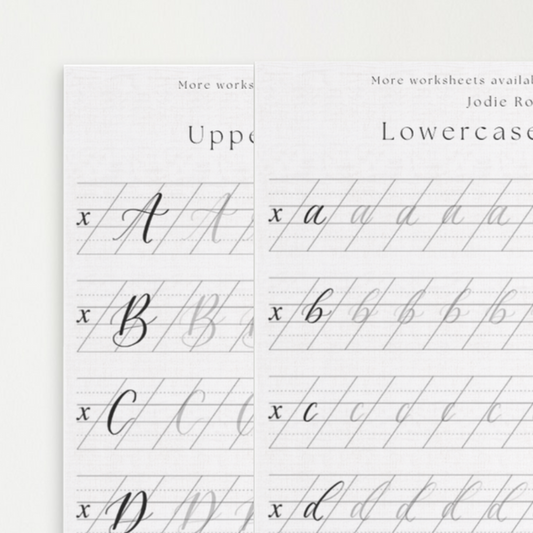 More works
Uppe
x A A
x B B
x C C C
x D D D
More worksheets availab
Jodie Ro
Lowercase
x a a a a a
x b b b b b
x c c c c c
x d d d d d